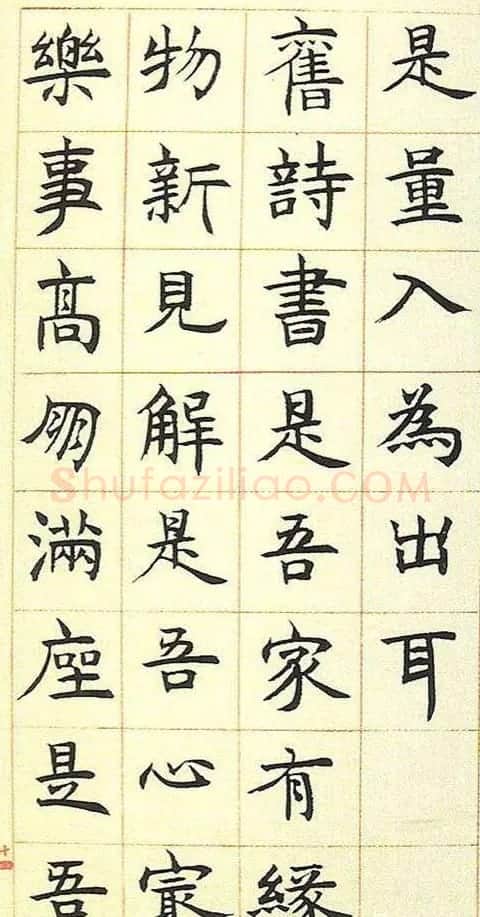 是量入為出耳
舊詩書是吾家有緣
物新見解是吾心㝡
樂事髙朋滿座是吾
十四
Shufaziliao.COM